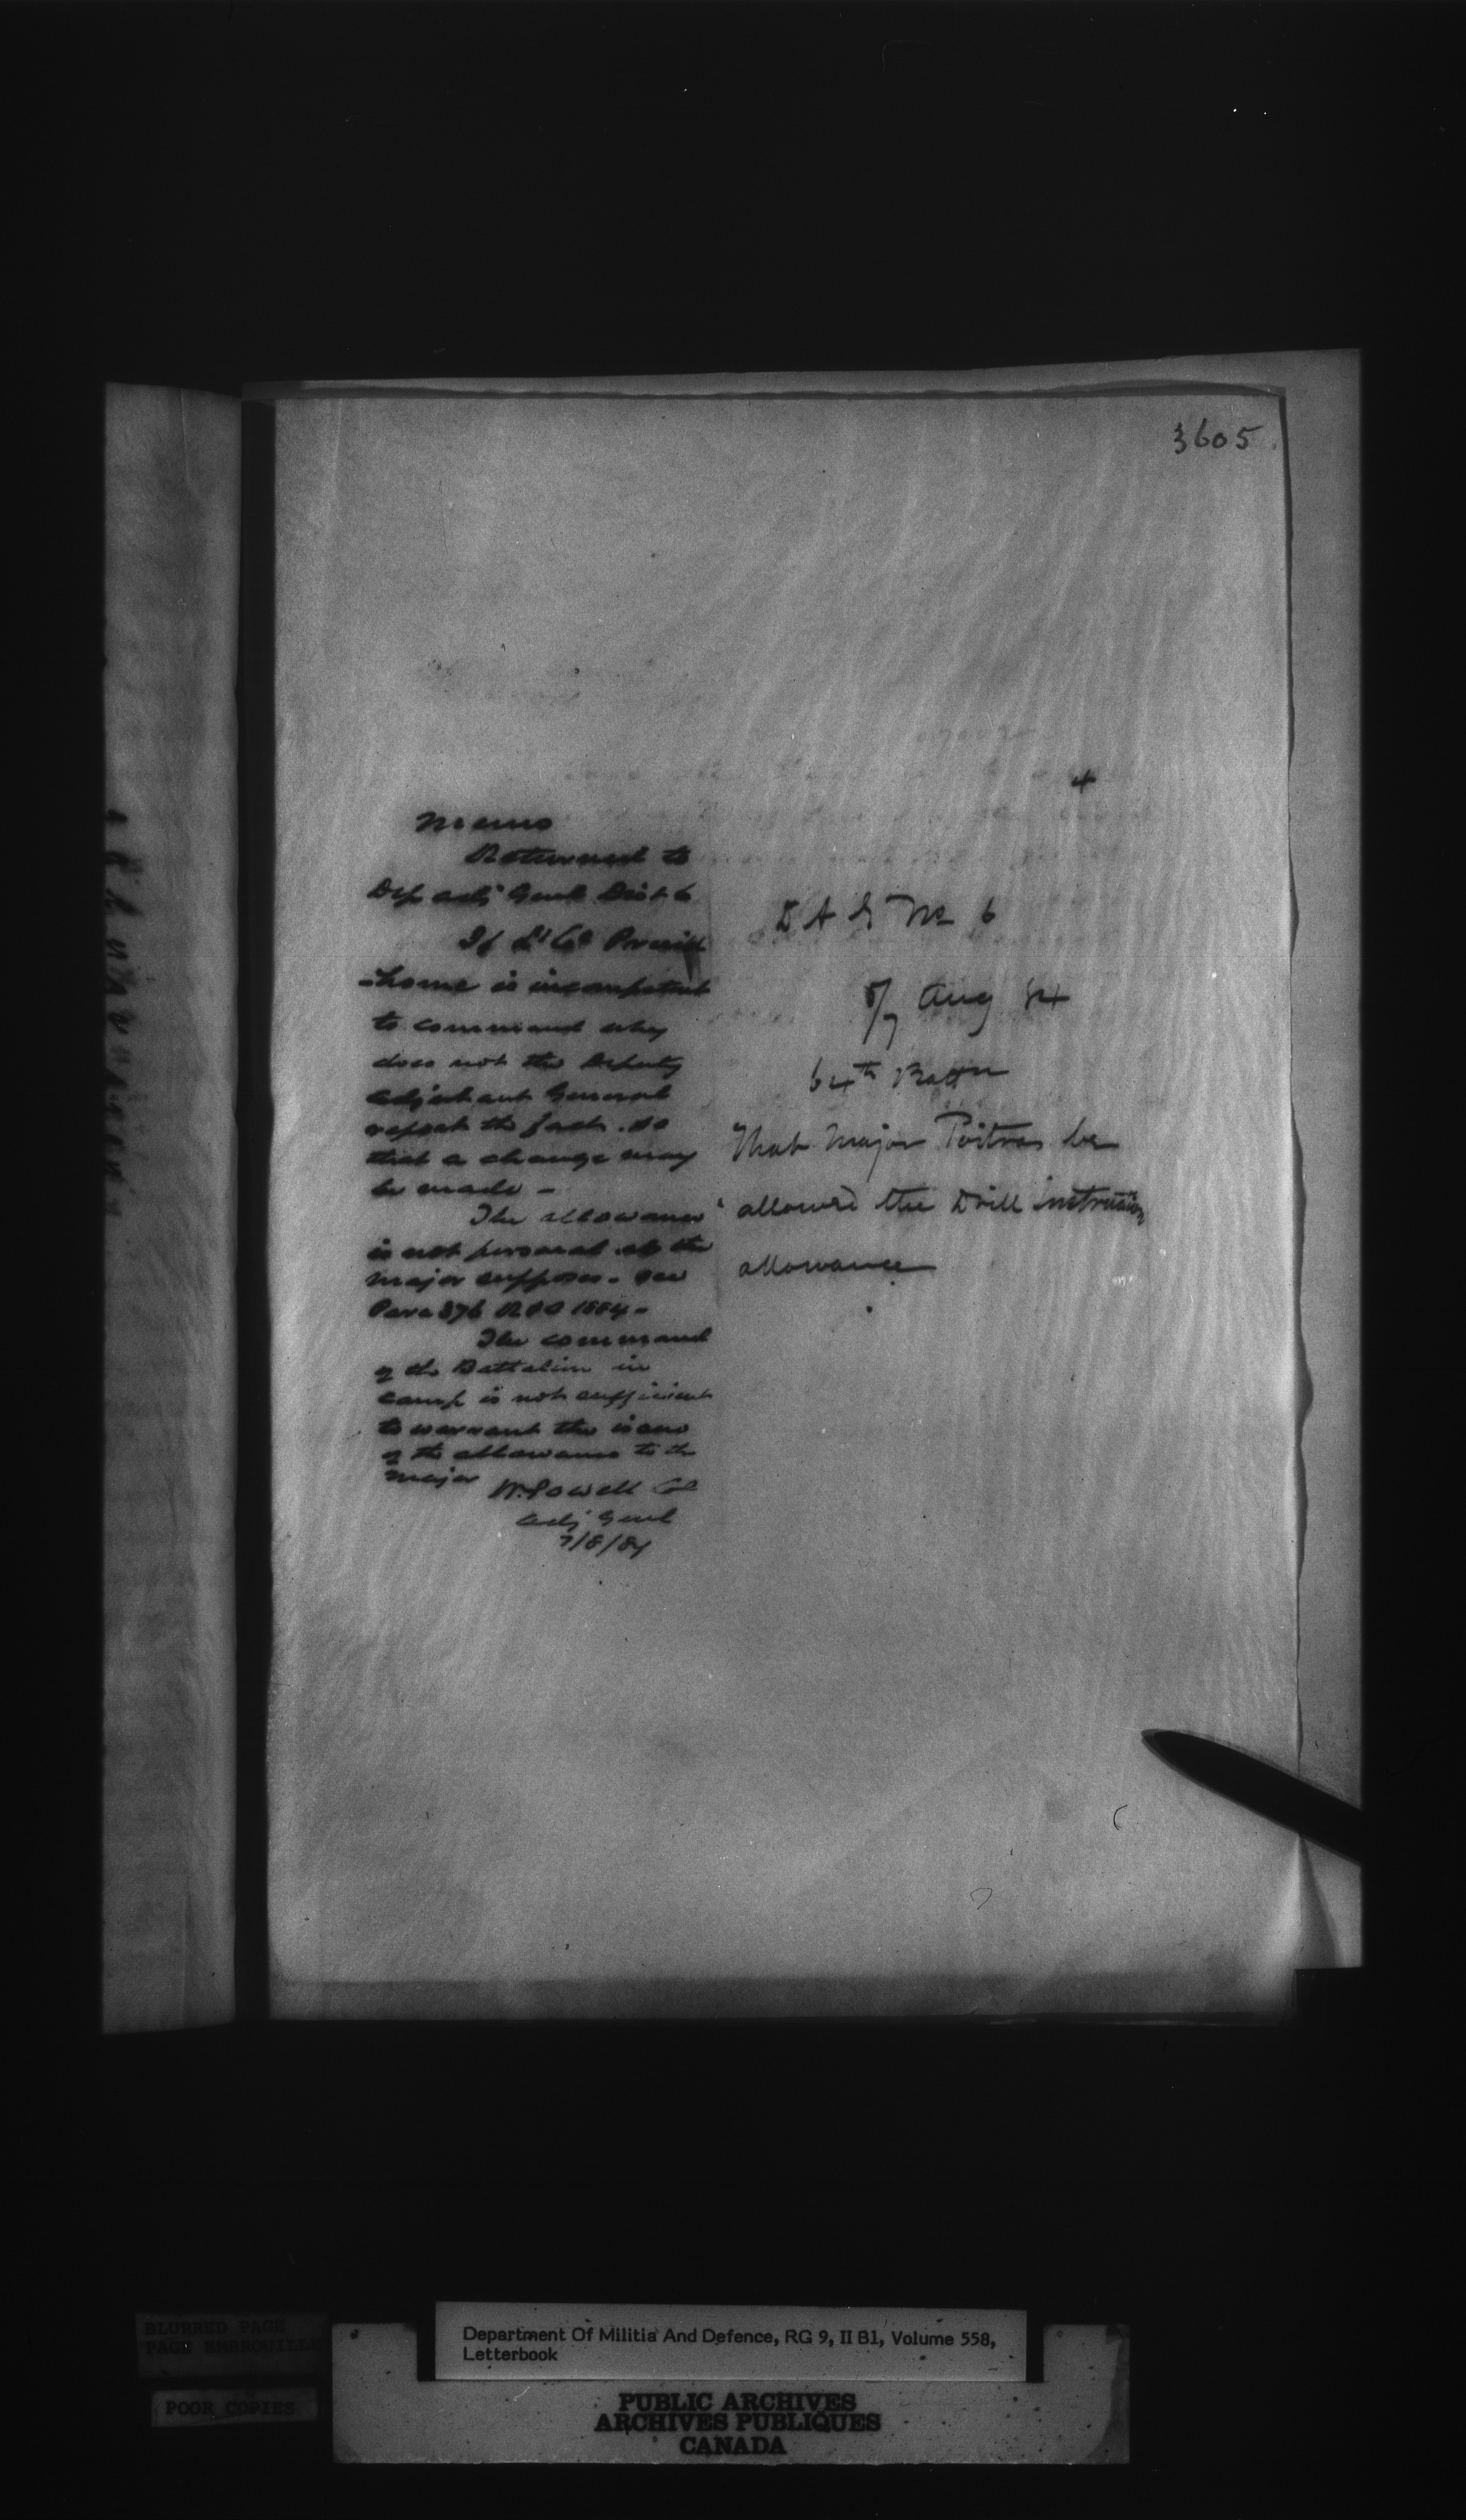 3605
Memo
Returned to
Dep adj Genl Dist 6
If Lt Col
-home is incompetent
to command why
does not the Deputy
adjutant General
report the fact. so
that a change may
be made -
The allowance
is not personal as the
major supposes - see
Para 376 R & O 1884 -
The command
of the Battalion in
camp is not sufficient
to warrant the issue
of the allowance to the
major
W. Powell Col
adj Genl
7/8/84
D A G No 6
5/7 Aug 84
64th Battn
That Major Poitras be
allowed the Drill instruction
allowance
BLURRED PAGE
PAGE EMBROUILLE
POOR COPIES
Department Of Militia And Defence, RG 9, II B1, Volume 558,
Letterbook
PUBLIC ARCHIVES
ARCHIVES PUBLIQUES
CANADA